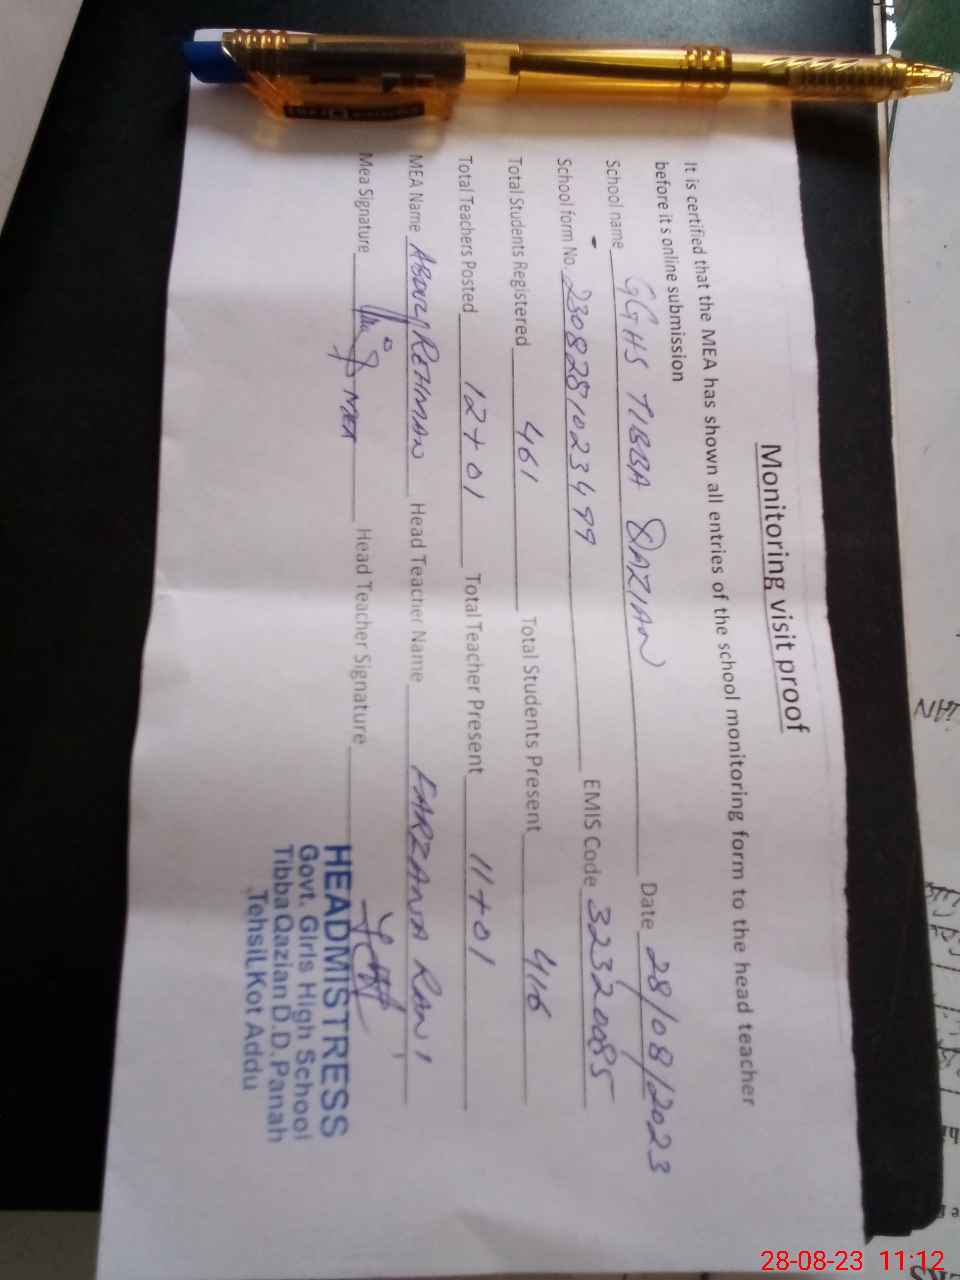 Monitoring visit proof
It is certified that the MEA has shown all entries of the school monitoring form to the head teacher
before it s online submission
School name GGHS TIBBA QAZIAN Date 28/08/2023
School form No 2308281023499 EMIS Code 32320085
Total Students Registered 461 Total Students Present 416
Total Teachers Posted 12+01 Total Teacher Present 11+01
MEA Name ABDUL REHMAN Head Teacher Name FARZANA RANI
Mea Signature MEA Head Teacher Signature
HEADMISTRESS
Govt. Girls High School
Tibba Qazian D.D. Panah
Tehsil Kot Addu
28-08-23 11:12